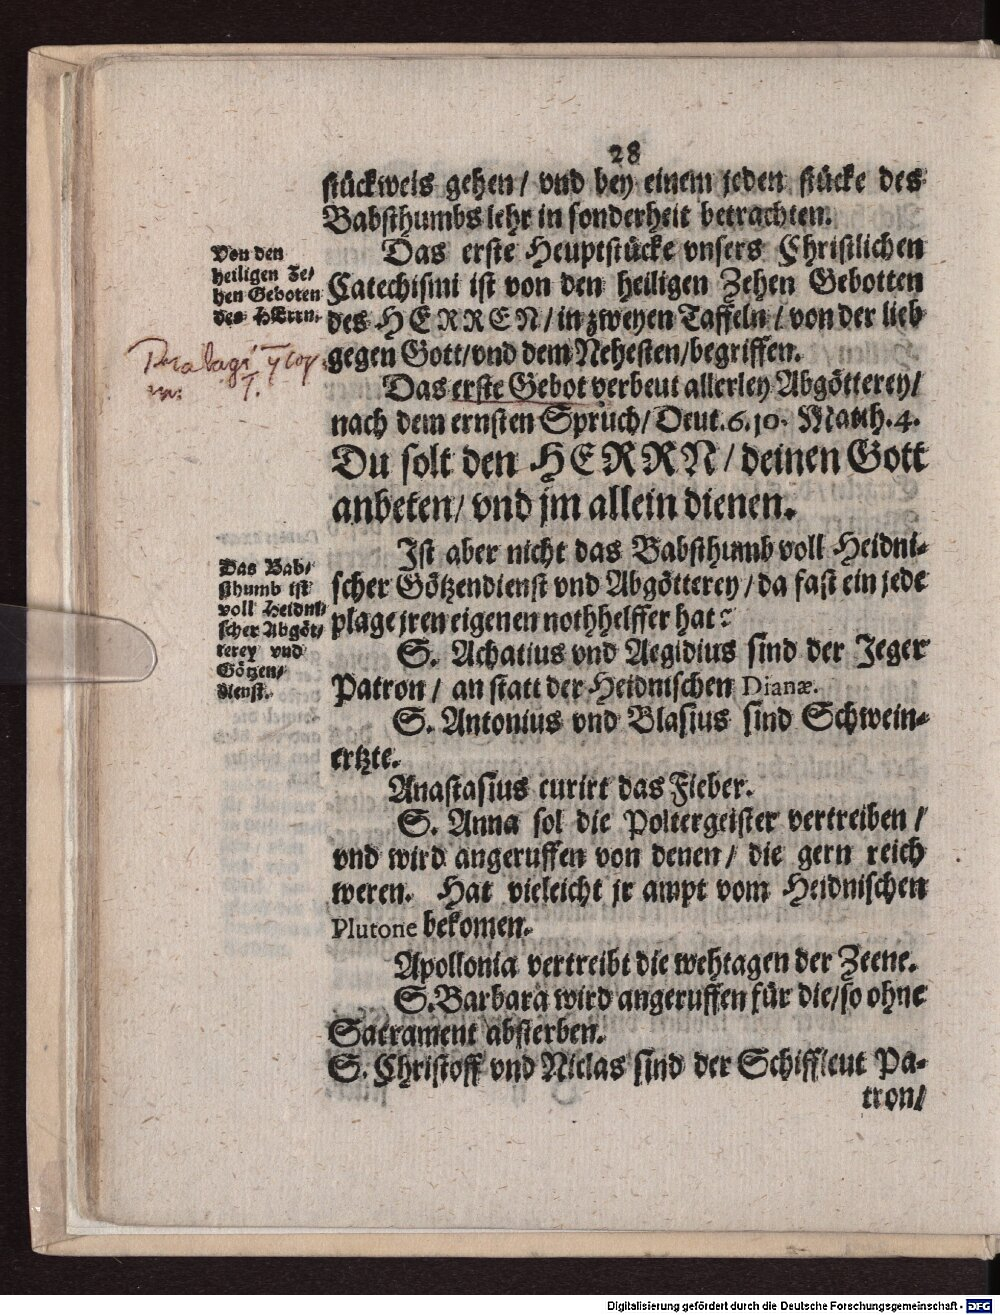 28
stückweis gehen / vnd bey einem jeden stücke des
Babsthumbs lehr in sonderheit betrachten.
Von den
heiligen Ze/
hen Geboten
des HErrn.
Das erste Heuptstücke vnsers Christlichen
Catechismi ist von den heiligen Zehen Gebotten
des HERREN / in zweyen Taffeln / von der lieb
gegen Gott/vnd dem Nehesten/begriffen.
Das erste Gebot verbeut allerley Abgötterey/
nach dem ernsten Spruch/ Deut.6.10. Matth.4.
Du solt den HERRN / deinen Gott
anbeten/ vnd jm allein dienen.
Das Bab/
sthumb ist
voll Heidni/
scher Abgöt/
terey vnd
Götzen/
dienst.
Ist aber nicht das Babsthumb voll Heidni-
scher Götzendienst vnd Abgötterey / da fast ein jede
plage jren eigenen nothhelffer hat?
S. Achatius vnd Aegidius sind der Jeger
Patron / an statt der Heidnischen Dianæ.
S. Antonius vnd Blasius sind Schwein-
ertzte.
Anastasius curirt das Fieber.
S. Anna sol die Poltergeister vertreiben /
vnd wird angeruffen von denen / die gern reich
weren. Hat vieleicht jr ampt vom Heidnischen
Plutone bekomen.
Apollonia vertreibt die wehtagen der Zeene.
S. Barbara wird angeruffen für die/so ohne
Sacrament absterben.
S. Christoff vnd Niclas sind der Schiffleut Pa-
tron/
Digitalisierung gefördert durch die Deutsche Forschungsgemeinschaft - DFG